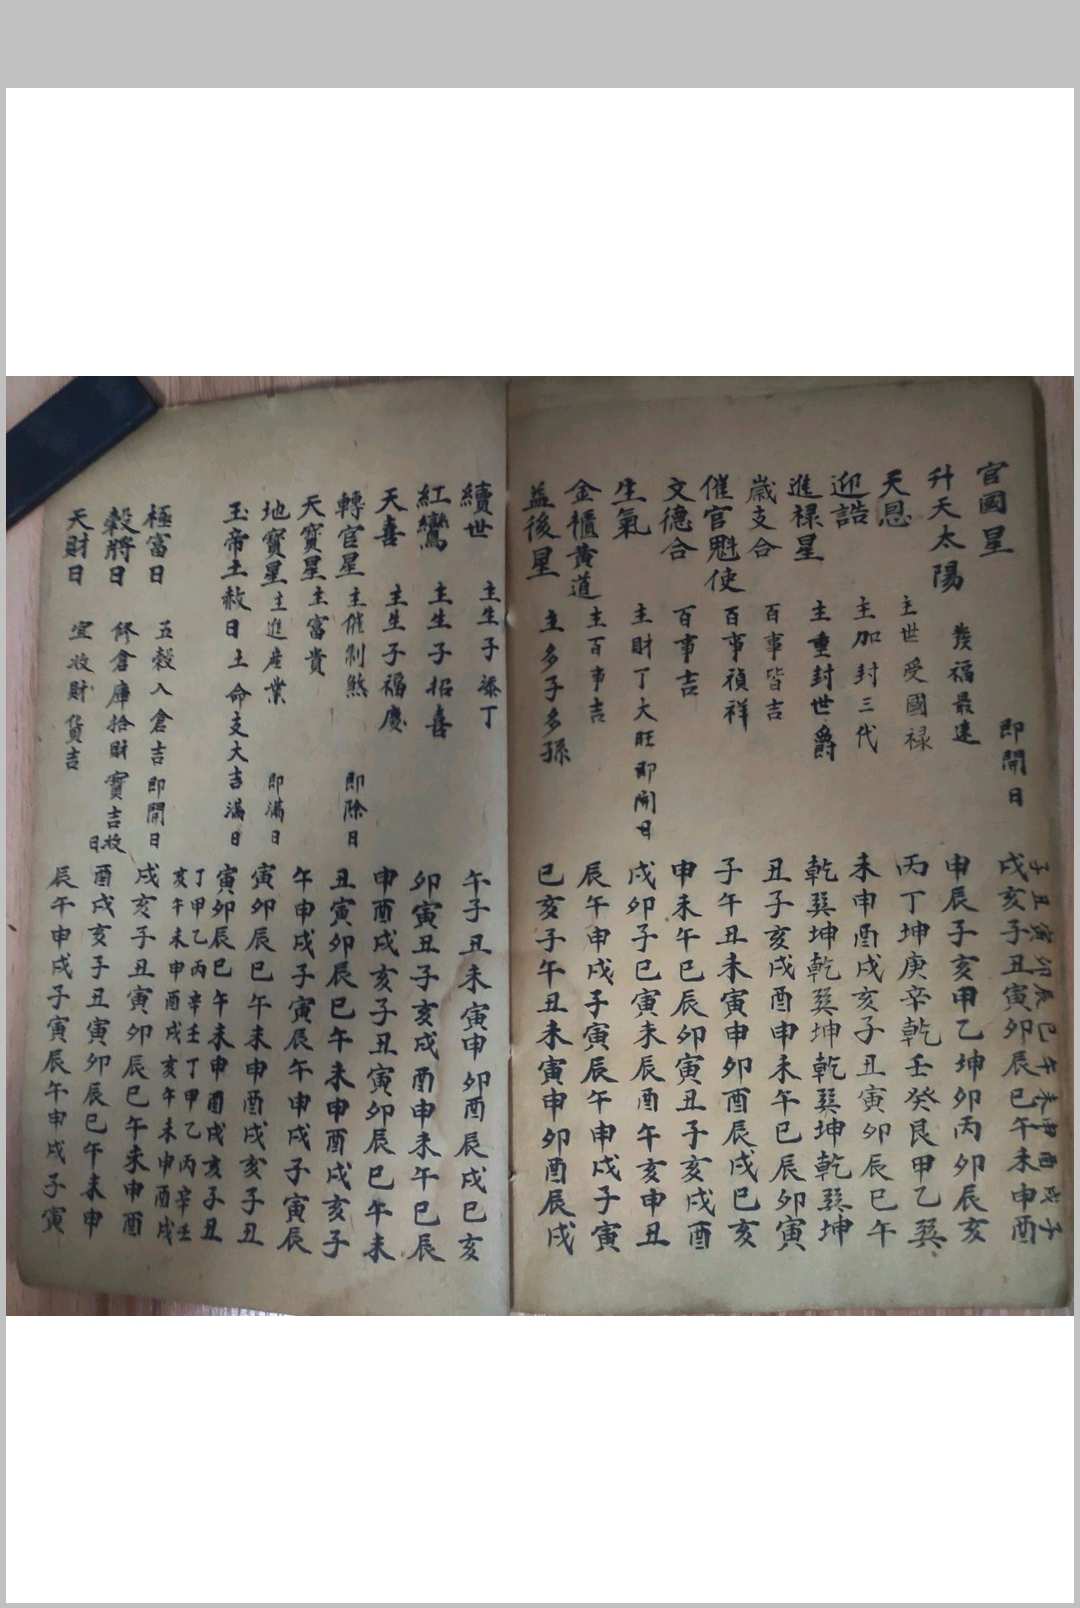 子丑寅卯辰巳午未申酉戌子
官國星 即開日 戌亥子丑寅卯辰巳午未申酉
升天太陽 發福最速 申辰子亥甲乙坤卯丙卯辰亥
天恩 主世受國禄 丙丁坤庚辛乾壬癸艮甲乙巽
迎誥 主加封三代 未申酉戌亥子丑寅卯辰巳午
進禄星 主重封世爵 乾巽坤乾巽坤乾巽坤乾巽坤
歲支合 百事皆吉 丑子亥戌酉申未午巳辰卯寅
催官魁使 百事禎祥 子午丑未寅申卯酉辰戌巳亥
文德合 百事吉 申未午巳辰卯寅丑子亥戌酉
生氣 主財丁大旺即開日 戌卯子巳寅未辰酉午亥申丑
金櫃黄道 主百事吉 辰午申戌子寅辰午申戌子寅
益後星 主多子多孫 巳亥子午丑未寅申卯酉辰戌
續世 主生子添丁 午子丑未寅申卯酉辰戌巳亥
紅鸞 主生子招喜 卯寅丑子亥戌酉申未午巳辰
天喜 主生子福慶 申酉戌亥子丑寅卯辰巳午未
轉官星 主催制煞 即除日 丑寅卯辰巳午未申酉戌亥子
天寶星 主富貴 午申戌子寅辰午申戌子寅辰
地寶星 主進産業 即滿日 寅卯辰巳午未申酉戌亥子丑
玉帝土赦日 土命支大吉滿日 寅卯辰巳午未申酉戌亥子丑
丁甲乙丙辛壬丁甲乙丙辛壬
亥午未申酉戌亥午未申酉戌
極富日 五穀入倉吉 即開日 戌亥子丑寅卯辰巳午未申酉
穀將日 修倉庫拾財寶吉收日 酉戌亥子丑寅卯辰巳午未申
天財日 宜收財貨吉 辰午申戌子寅辰午申戌子寅